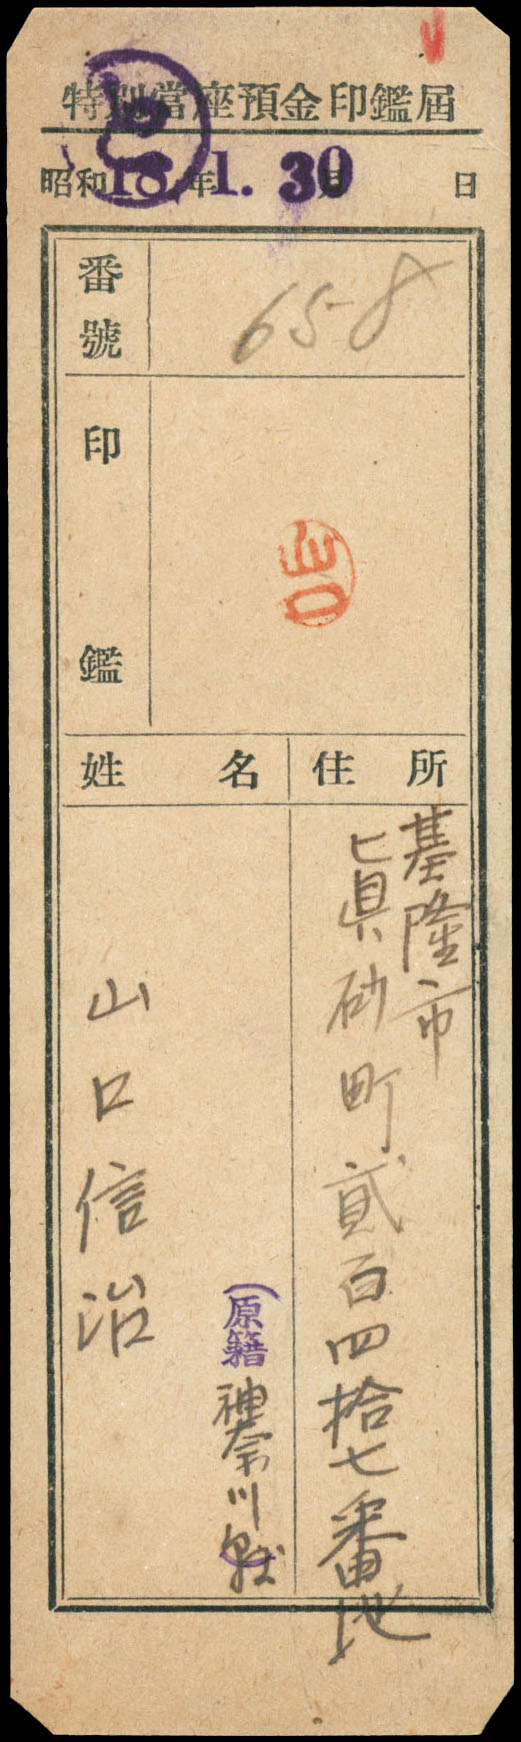 特別當座預金印鑑届
昭和18年1.30月 日
番號
658
印鑑
山口
姓名
住所
基隆市
眞砂町貳百四拾七番地
(原籍 神奈川縣
山口信治